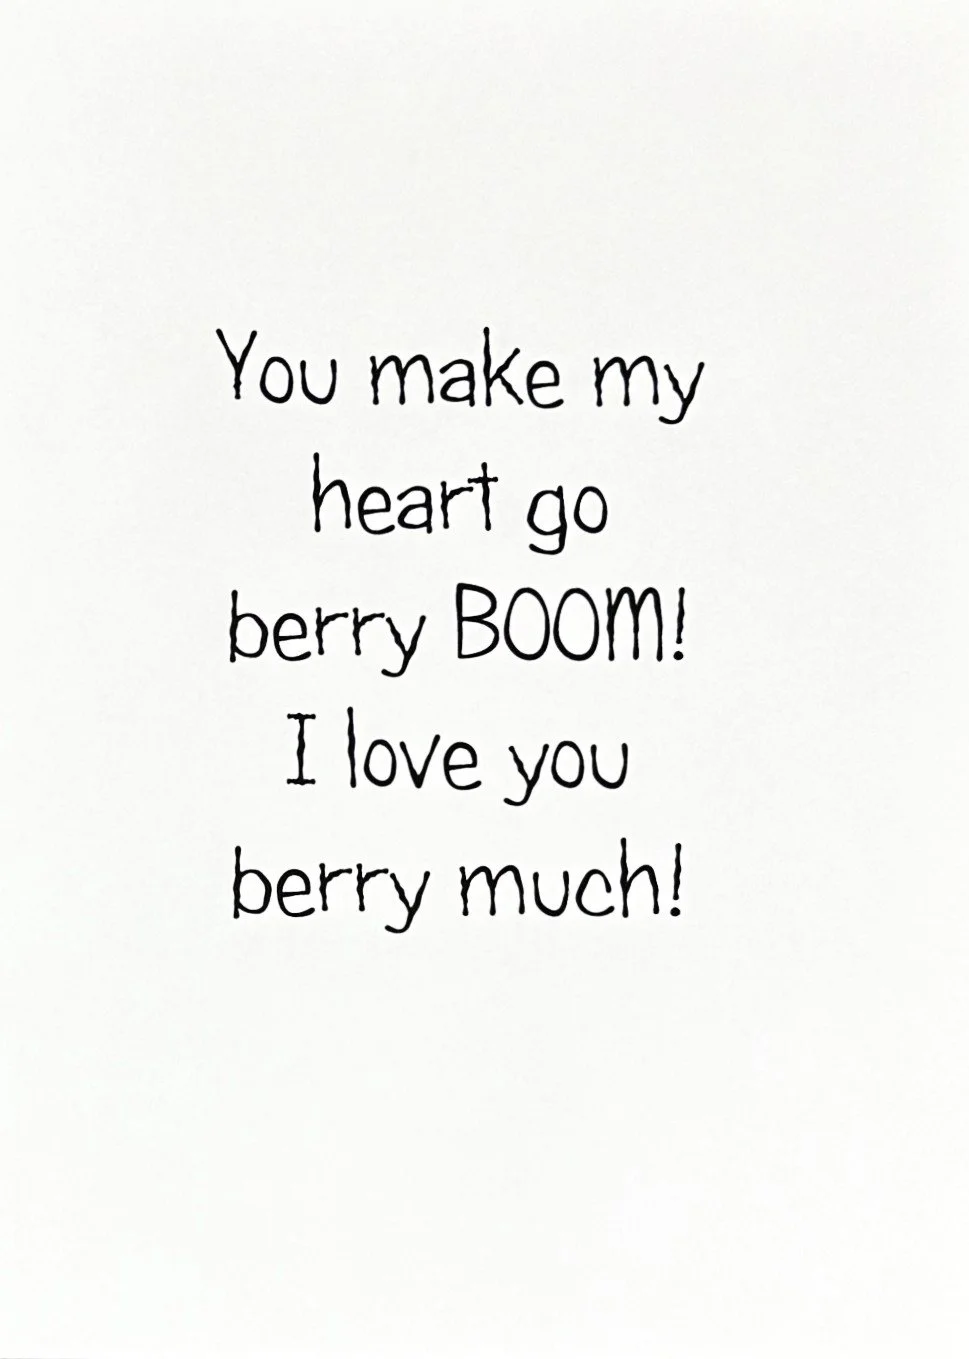 You make my
heart go
berry BOOM!
I love you
berry much!